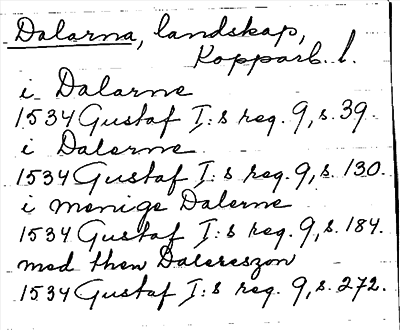 Dalarna, landskap,
Kopparb. l.
i Dalarne
1534 Gustaf I:s reg. 9, s. 39.
i Dalerne
1534 Gustaf I:s reg. 9, s. 130.
i menige Dalerne
1534 Gustaf I:s reg. 9, s. 184.
med then Dalereszon
1534 Gustaf I:s reg. 9, s. 272.